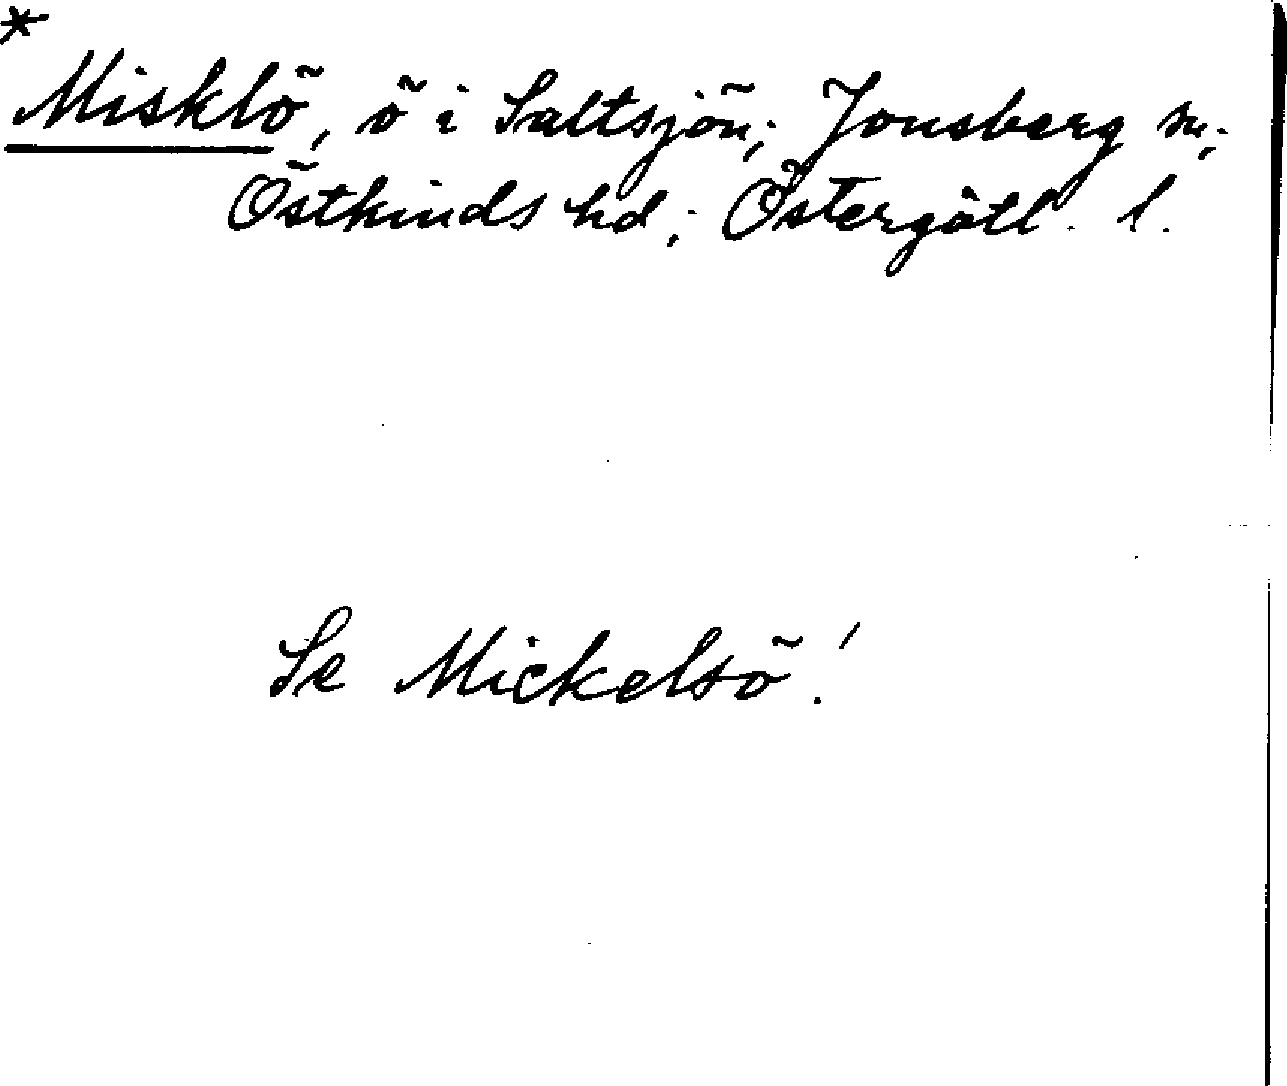 *
Misklö, ö i Saltsjön; Jonsberg sn;
Östkinds hd; Östergötl. l.
Se Mickelsö!